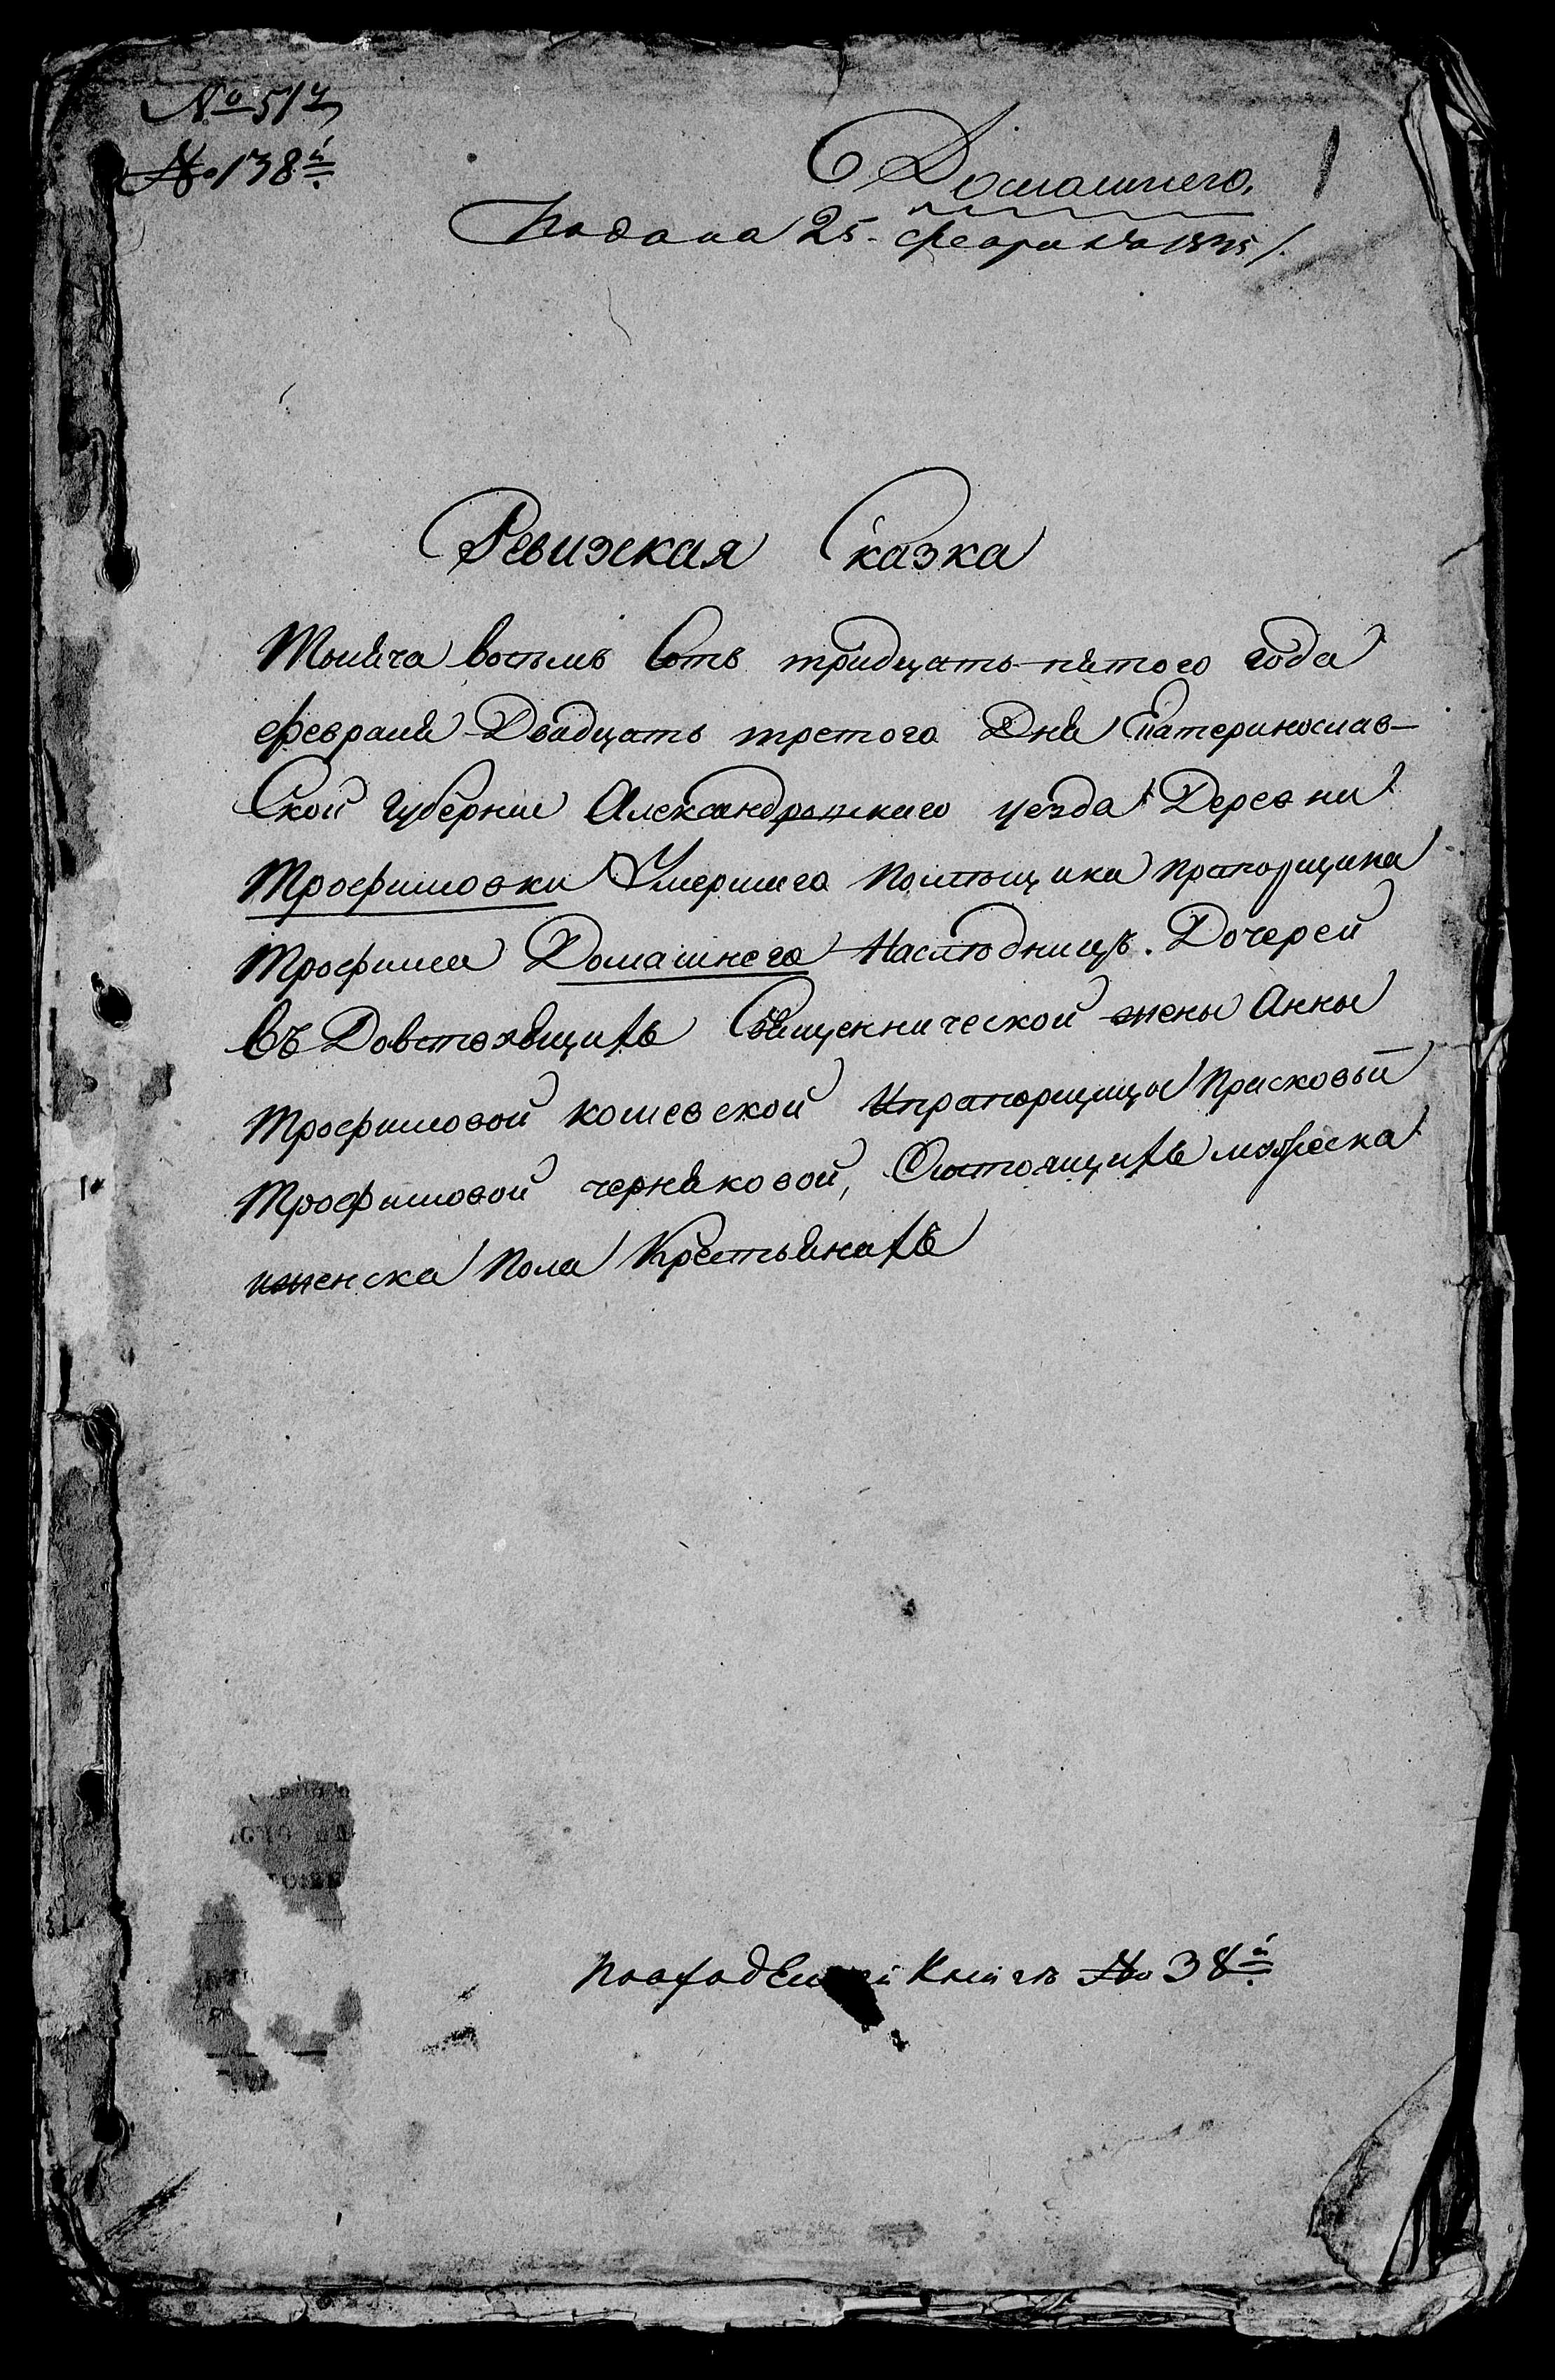 № 517
№ 138й
Домашнего.
1
Подана 25. февраля 1835/.
Ревижская Сказка
Тысяча восемь сотъ тридцать пятого года
февраля Двадцать третого Дня Екатеринослав-
Ской Губернии Александровского уезда Деревни
Трофимовки Умершаго помещика прапорщика
Трофима Домашнего Наследницъ. Дочерей
Священнической жены Анны
Трофимовой кошевской ипрапорщицы Прасковьи
Трофимовой черняковой, Состоящихъ мужеска
иженска Пола Крестьянахъ
Книги № 38й